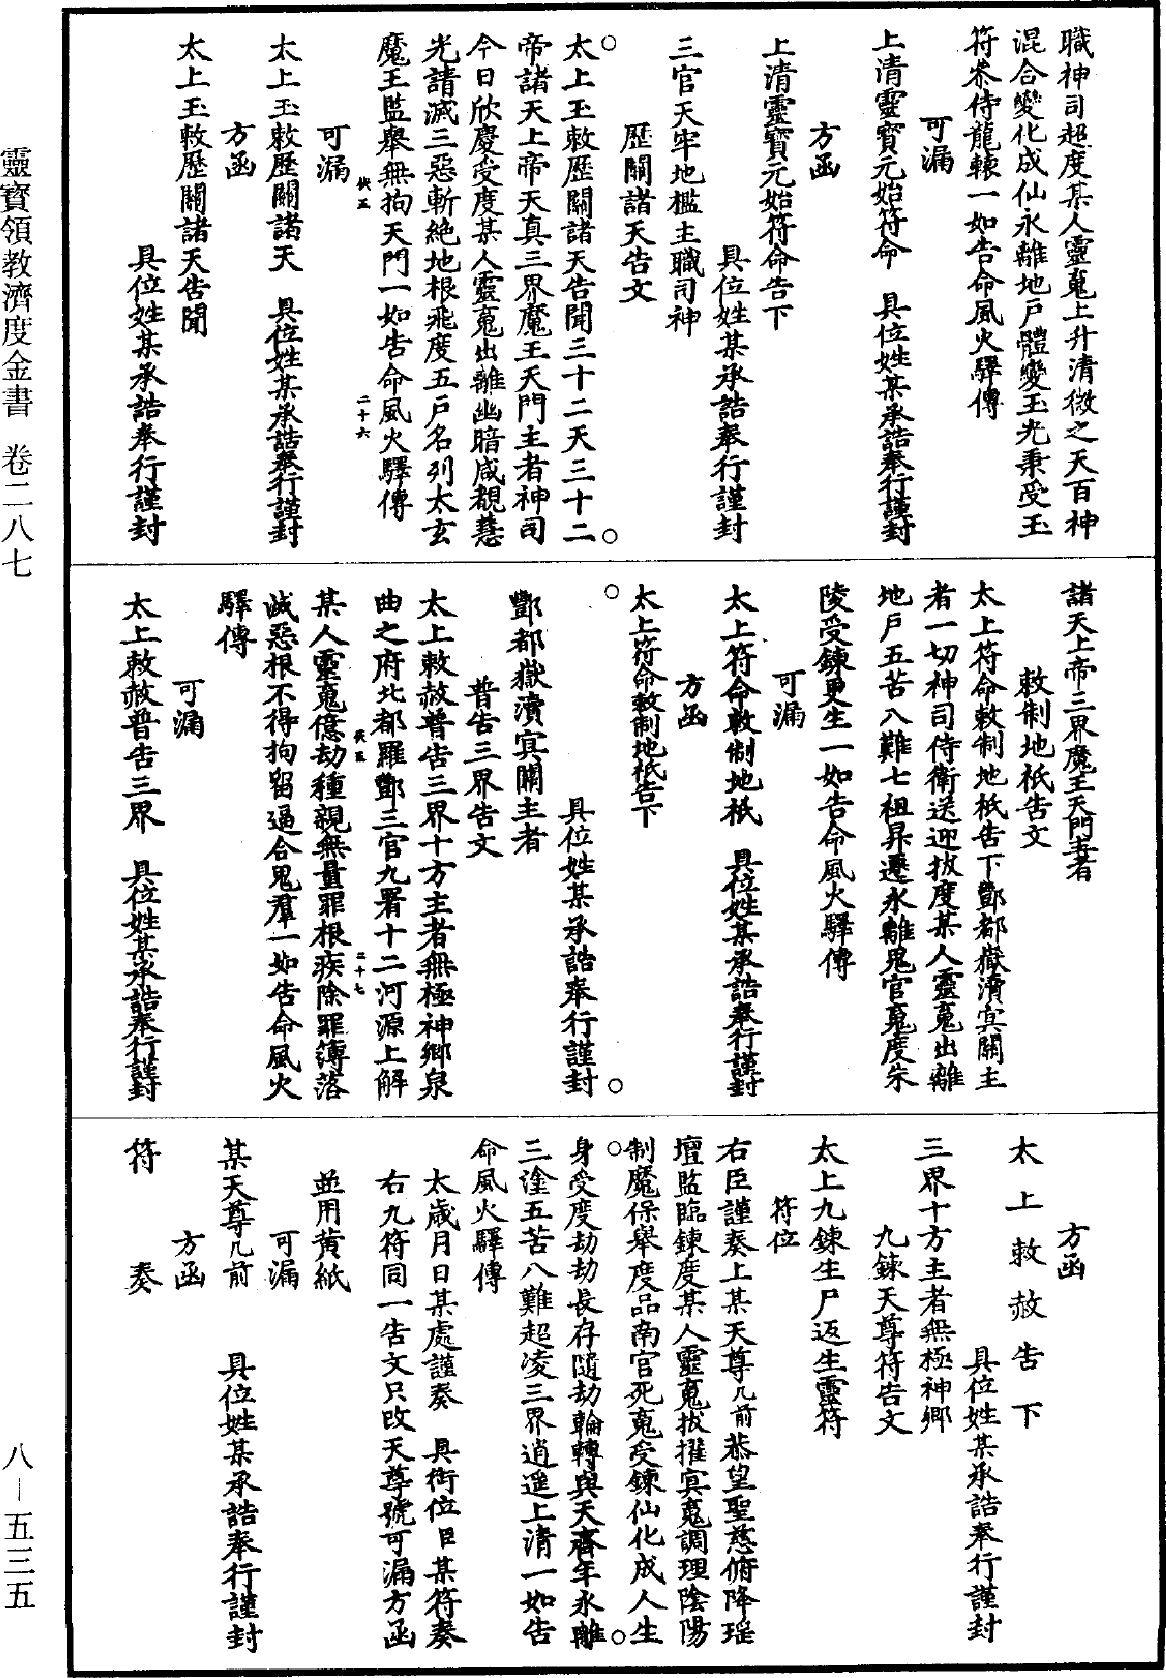 職神司超度某人靈䰟上升清微之天百神
混合變化成仙永離地戶體變玉光秉受玉
符恭侍龍轅一如告命風火驛傳
可漏
上清靈寶元始符命　具位姓某承誥奉行謹封
方函
上清靈寶元始符命告下
具位姓某承誥奉行謹封
三官天牢地檻主職司神
歷關諸天告文
太上玉敕歷關諸天告聞三十二天三十二
帝諸天上帝天真三界魔王天門主者神司
今日欣慶受度某人靈䰟出離幽暗咸覩慧
光請滅三惡斬絶地根飛度五戶名列太玄
魔王監舉無拘天門一如告命風火驛傳
二十六
可漏
太上玉敕歷關諸天　具位姓某承誥奉行謹封
方函
太上玉敕歷關諸天告聞
具位姓某承誥奉行謹封
諸天上帝三界魔王天門主者
敕制地祇告文
太上符命敕制地祇告下酆都嶽瀆冥關主
者一切神司侍衛送迎拔度某人靈䰟出離
地戶五苦八難七祖昇遷永離鬼官䰟度朱
陵受鍊更生一如告命風火驛傳
可漏
太上符命敕制地祇　具位姓某承誥奉行謹封
方函
太上符命敕制地祇告下
具位姓某承誥奉行謹封
酆都嶽瀆冥關主者
普告三界告文
太上敕赦普告三界十方主者無極神鄉泉
曲之府北都羅酆三官九署十二河源上解
某人靈䰟億劫種親無量罪根疾除罪簿落
二十七
滅惡根不得拘留逼合鬼羣一如告命風火
驛傳
可漏
太上敕赦普告三界　具位姓某承誥奉行謹封
方函
太上敕赦告下
具位姓某承誥奉行謹封
三界十方主者無極神鄉
九鍊天尊符告文
太上九鍊生尸返生靈符
符位
右臣謹奏上某天尊几前恭望聖慈俯降瑶
壇監臨鍊度某人靈䰟拔擢冥䰟調理陰陽
制魔保舉度品南宮死䰟受鍊仙化成人生
身受度劫劫長存隨劫輪轉與天齊年永離
三塗五苦八難超凌三界逍遥上清一如告
命風火驛傳
太歲月日某處謹奏　具銜位臣某符奏
右九符同一告文只改天尊號可漏方函
並用黄紙
可漏
某天尊几前　具位姓某承誥奉行謹封
方函
符　奏
靈寶領教濟度金書　卷二八七
八—五三五